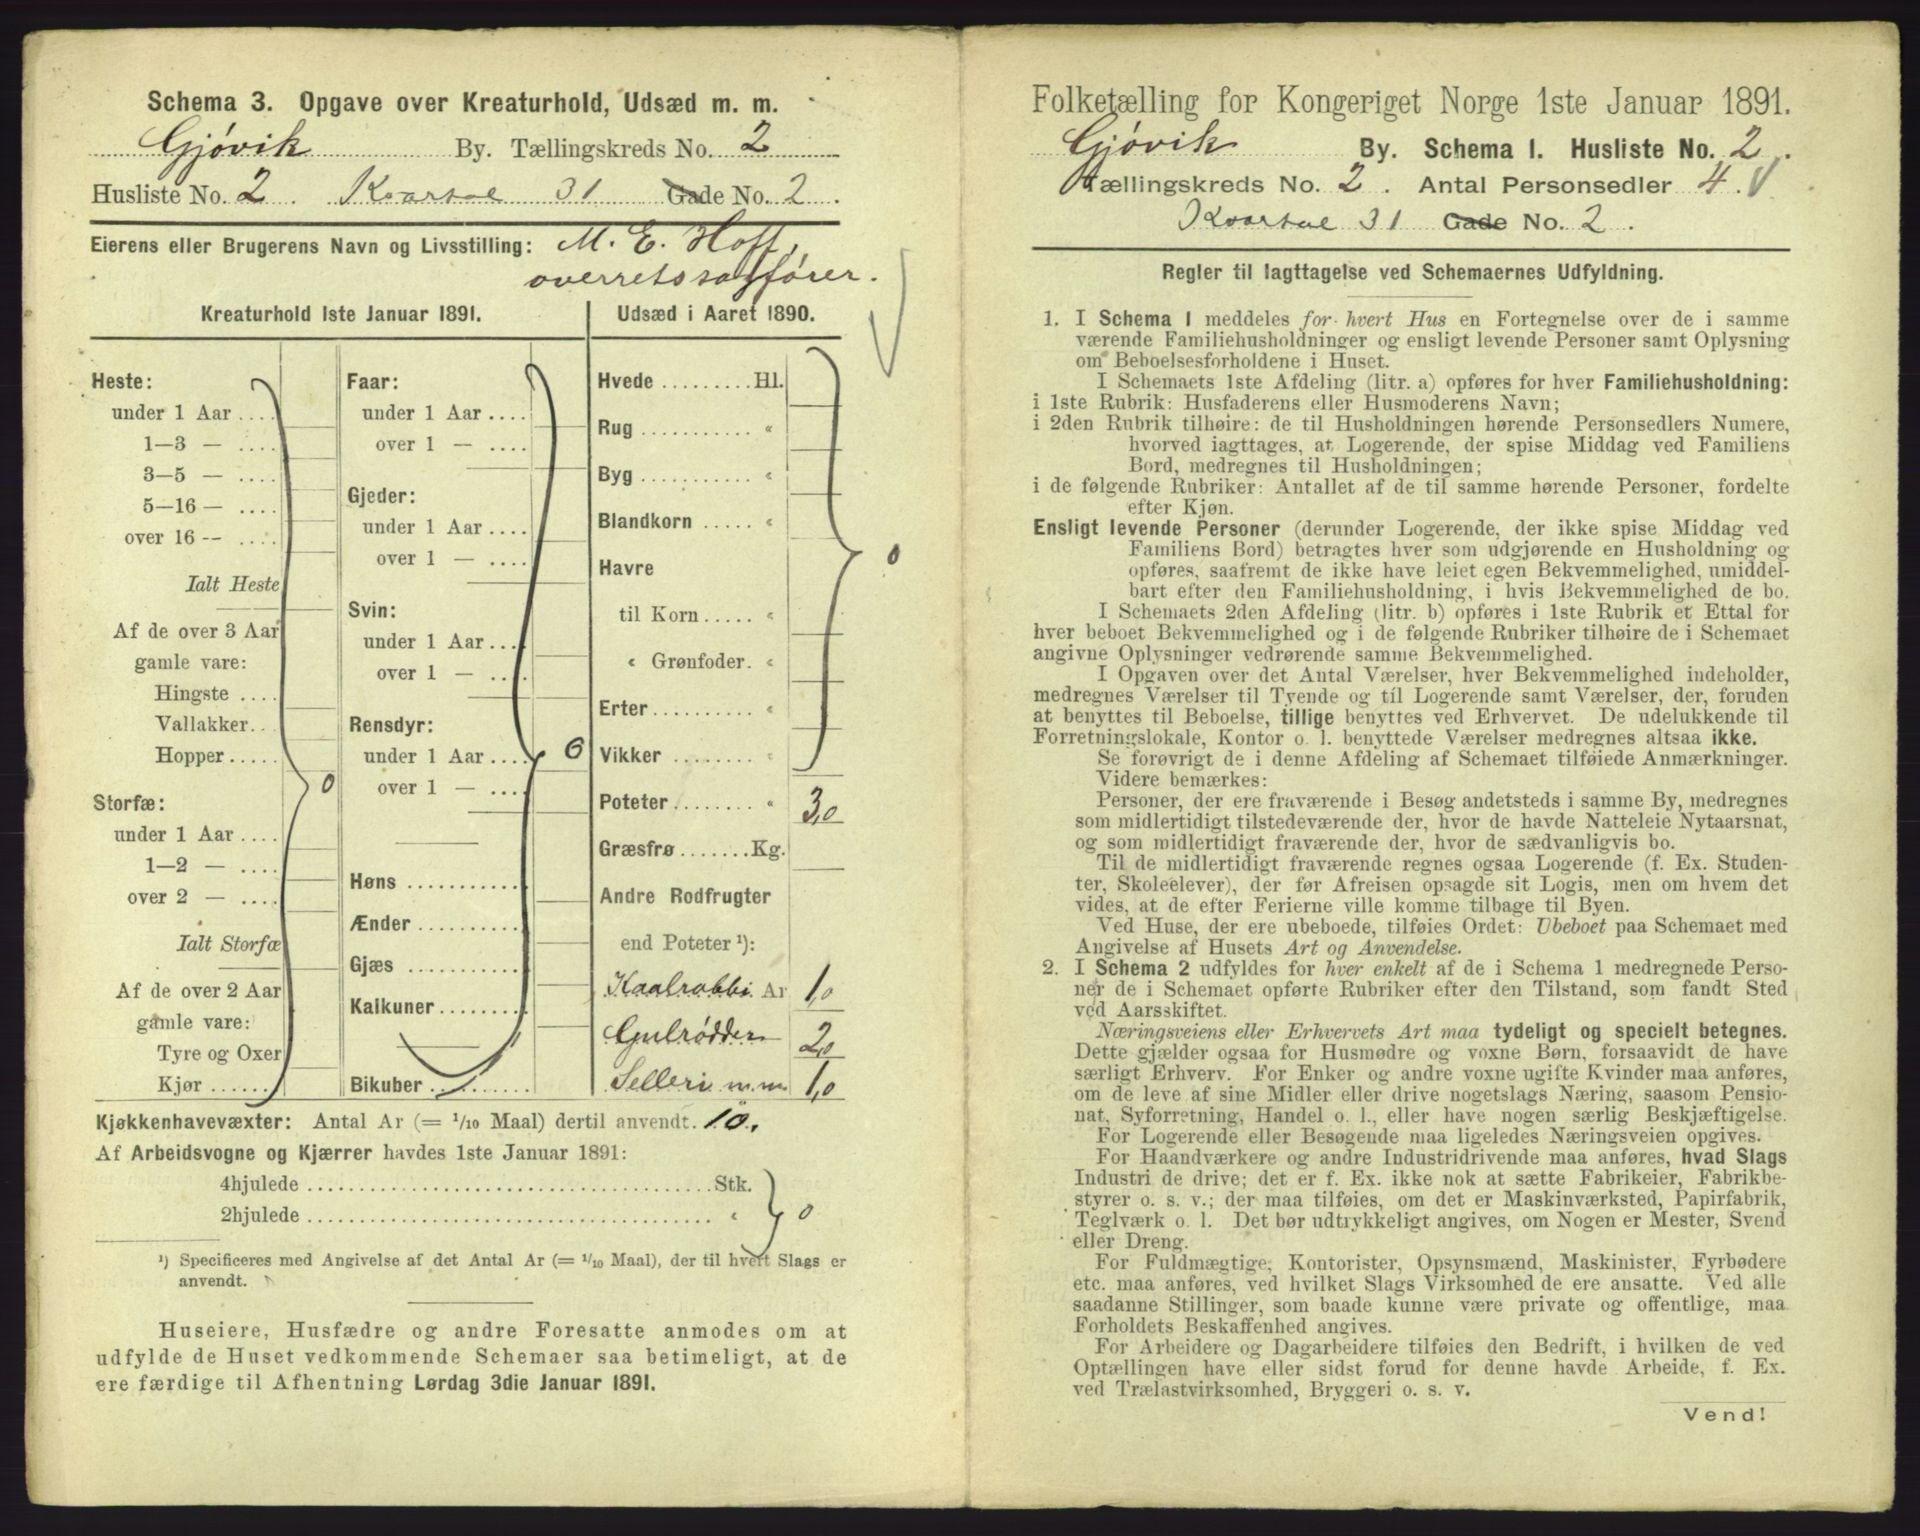 Schema 3. Opgave over Kreaturhold, Udsæd m. m.
Gjøvik By. Tællingskreds No. 2
Husliste No. 2. Kvartal 31 Gade No. 2.
Eierens eller Brugerens Navn og Livsstilling: M. E. Hoff,
overretssagfører.
Kreaturhold 1ste Januar 1891.
Heste:
under 1 Aar ....
1—3 — ....
3—5 — ....
5—16 — ....
over 16 -- ....
Ialt Heste
Af de over 3 Aar
gamle vare:
Hingste ....
Vallakker...
Hopper.....
0
Storfæ:
under 1 Aar ....
1—2 — ....
over 2 — ....
Ialt Storfæ
Af de over 2 Aar
gamle vare:
Tyre og Oxer
Kjør ......
Faar:
under 1 Aar ....
over 1 — ....
Gjeder:
under 1 Aar ....
over 1 — ....
Svin:
under 1 Aar ...
over 1 — ....
Rensdyr:
under 1 Aar ....
over 1 — ....
0
Høns ...........
Ænder ..........
Gjæs ...........
Kalkuner........
Bikuber ........
Udsæd i Aaret 1890.
Hvede .........Hl.
Rug ........... «
Byg ........... «
Blandkorn ..... «
0
Havre
til Korn..... «
« Grønfoder. «
Erter.......... «
Vikker ........ «
Poteter........ « 3,0
Græsfrø.......Kg.
Andre Rodfrugter
end Poteter ¹):
Kaalrabbi Ar 1,0
Gulrødder 2,0
Selleri m.m. 1,0
Kjøkkenhavevæxter: Antal Ar (= 1/10 Maal) dertil anvendt. 10.
Af Arbeidsvogne og Kjærrer havdes 1ste Januar 1891:
4hjulede ........................................Stk.
2hjulede ........................................ « 0
¹) Specificeres med Angivelse af det Antal Ar (= 1/10 Maal), der til hvert Slags er
anvendt.
Huseiere, Husfædre og andre Foresatte anmodes om at
udfylde de Huset vedkommende Schemaer saa betimeligt, at de
ere færdige til Afhentning Lørdag 3die Januar 1891.
Folketælling for Kongeriget Norge 1ste Januar 1891.
Gjøvik By. Schema I. Husliste No. 2.
Tællingskreds No. 2. Antal Personsedler 4.
Kvartal 31 Gade No. 2.
Regler til Iagttagelse ved Schemaernes Udfyldning.
1. I Schema 1 meddeles for hvert Hus en Fortegnelse over de i samme
værende Familiehusholdninger og ensligt levende Personer samt Oplysning
om Beboelsesforholdene i Huset.
I Schemaets 1ste Afdeling (litr. a) opføres for hver Familiehusholdning:
i 1ste Rubrik: Husfaderens eller Husmoderens Navn;
i 2den Rubrik tilhøire: de til Husholdningen hørende Personsedlers Numere,
hvorved iagttages, at Logerende, der spise Middag ved Familiens
Bord, medregnes til Husholdningen;
i de følgende Rubriker: Antallet af de til samme hørende Personer, fordelte
efter Kjøn.
Ensligt levende Personer (derunder Logerende, der ikke spise Middag ved
Familiens Bord) betragtes hver som udgjørende en Husholdning og
opføres, saafremt de ikke have leiet egen Bekvemmelighed, umiddel-
bart efter den Familiehusholdning, i hvis Bekvemmelighed de bo.
I Schemaets 2den Afdeling (litr. b) opføres i 1ste Rubrik et Ettal for
hver beboet Bekvemmelighed og i de følgende Rubriker tilhøire de i Schemaet
angivne Oplysninger vedrørende samme Bekvemmelighed.
I Opgaven over det Antal Værelser, hver Bekvemmelighed indeholder,
medregnes Værelser til Tyende og til Logerende samt Værelser, der, foruden
at benyttes til Beboelse, tillige benyttes ved Erhvervet. De udelukkende til
Forretningslokale, Kontor o. l. benyttede Værelser medregnes altsaa ikke.
Se forøvrigt de i denne Afdeling af Schemaet tilføiede Anmærkninger.
Videre bemærkes:
Personer, der ere fraværende i Besøg andetsteds i samme By, medregnes
som midlertidigt tilstedeværende der, hvor de havde Natteleie Nytaarsnat,
og som midlertidigt fraværende der, hvor de sædvanligvis bo.
Til de midlertidigt fraværende regnes ogsaa Logerende (f. Ex. Studen-
ter, Skoleelever), der før Afreisen opsagde sit Logis, men om hvem det
vides, at de efter Ferierne ville komme tilbage til Byen.
Ved Huse, der ere ubeboede, tilføies Ordet: Ubeboet paa Schemaet med
Angivelse af Husets Art og Anvendelse.
2. I Schema 2 udfyldes for hver enkelt af de i Schema 1 medregnede Perso-
ner de i Schemaet opførte Rubriker efter den Tilstand, som fandt Sted
ved Aarsskiftet.
Næringsveiens eller Erhvervets Art maa tydeligt og specielt betegnes.
Dette gjælder ogsaa for Husmødre og voxne Børn, forsaavidt de have
særligt Erhverv. For Enker og andre voxne ugifte Kvinder maa anføres,
om de leve af sine Midler eller drive nogetslags Næring, saasom Pensio-
nat, Syforretning, Handel o. l., eller have nogen særlig Beskjæftigelse.
For Logerende eller Besøgende maa ligeledes Næringsveien opgives.
For Haandværkere og andre Industridrivende maa anføres, hvad Slags
Industri de drive; det er f. Ex. ikke nok at sætte Fabrikeier, Fabrikbe-
styrer o. s. v.; der maa tilføies, om det er Maskinværksted, Papirfabrik,
Teglværk o. l. Det bør udtrykkeligt angives, om Nogen er Mester, Svend
eller Dreng.
For Fuldmægtige, Kontorister, Opsynsmænd, Maskinister, Fyrbødere
etc. maa anføres, ved hvilket Slags Virksomhed de ere ansatte. Ved alle
saadanne Stillinger, som baade kunne være private og offentlige, maa
Forholdets Beskaffenhed angives.
For Arbeidere og Dagarbeidere tilføies den Bedrift, i hvilken de ved
Optællingen have eller sidst forud for denne havde Arbeide, f. Ex.
ved Trælastvirksomhed, Bryggeri o. s. v.
Vend!